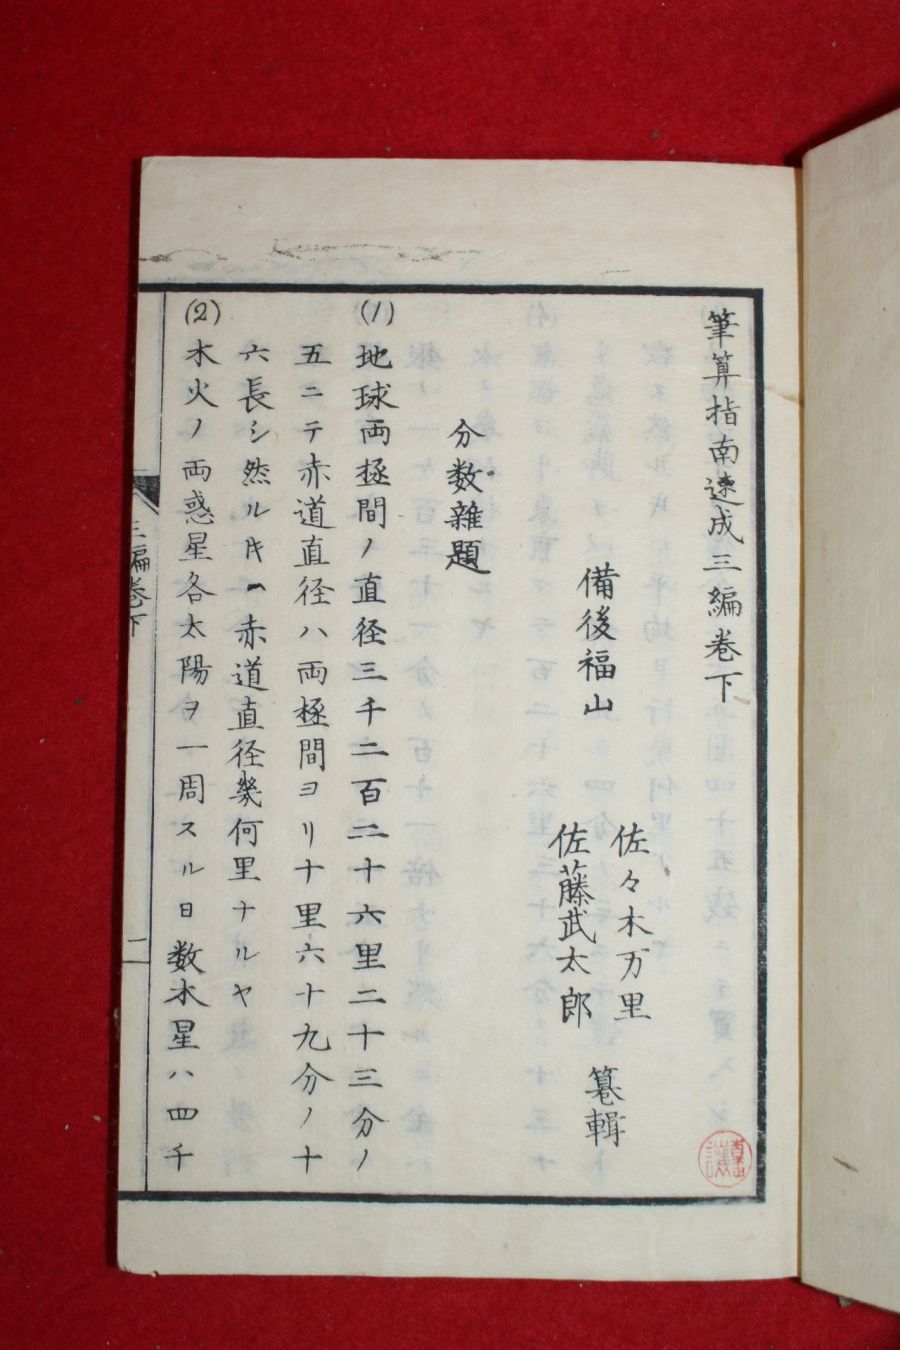 筆算指南速成三編巻下
備後福山
佐々木万里
佐藤武太郎
纂輯
分数雑題
(1)
地球両極間ノ直径三千二百二十六里二十三分ノ
五ニテ赤道直径ハ両極間ヨリ十里六十九分ノ十
六長シ然ルキハ赤道直径幾何里ナルヤ
(2)
木火ノ両惑星各太陽ヲ一周スル日数木星ハ四千
三編巻下
二